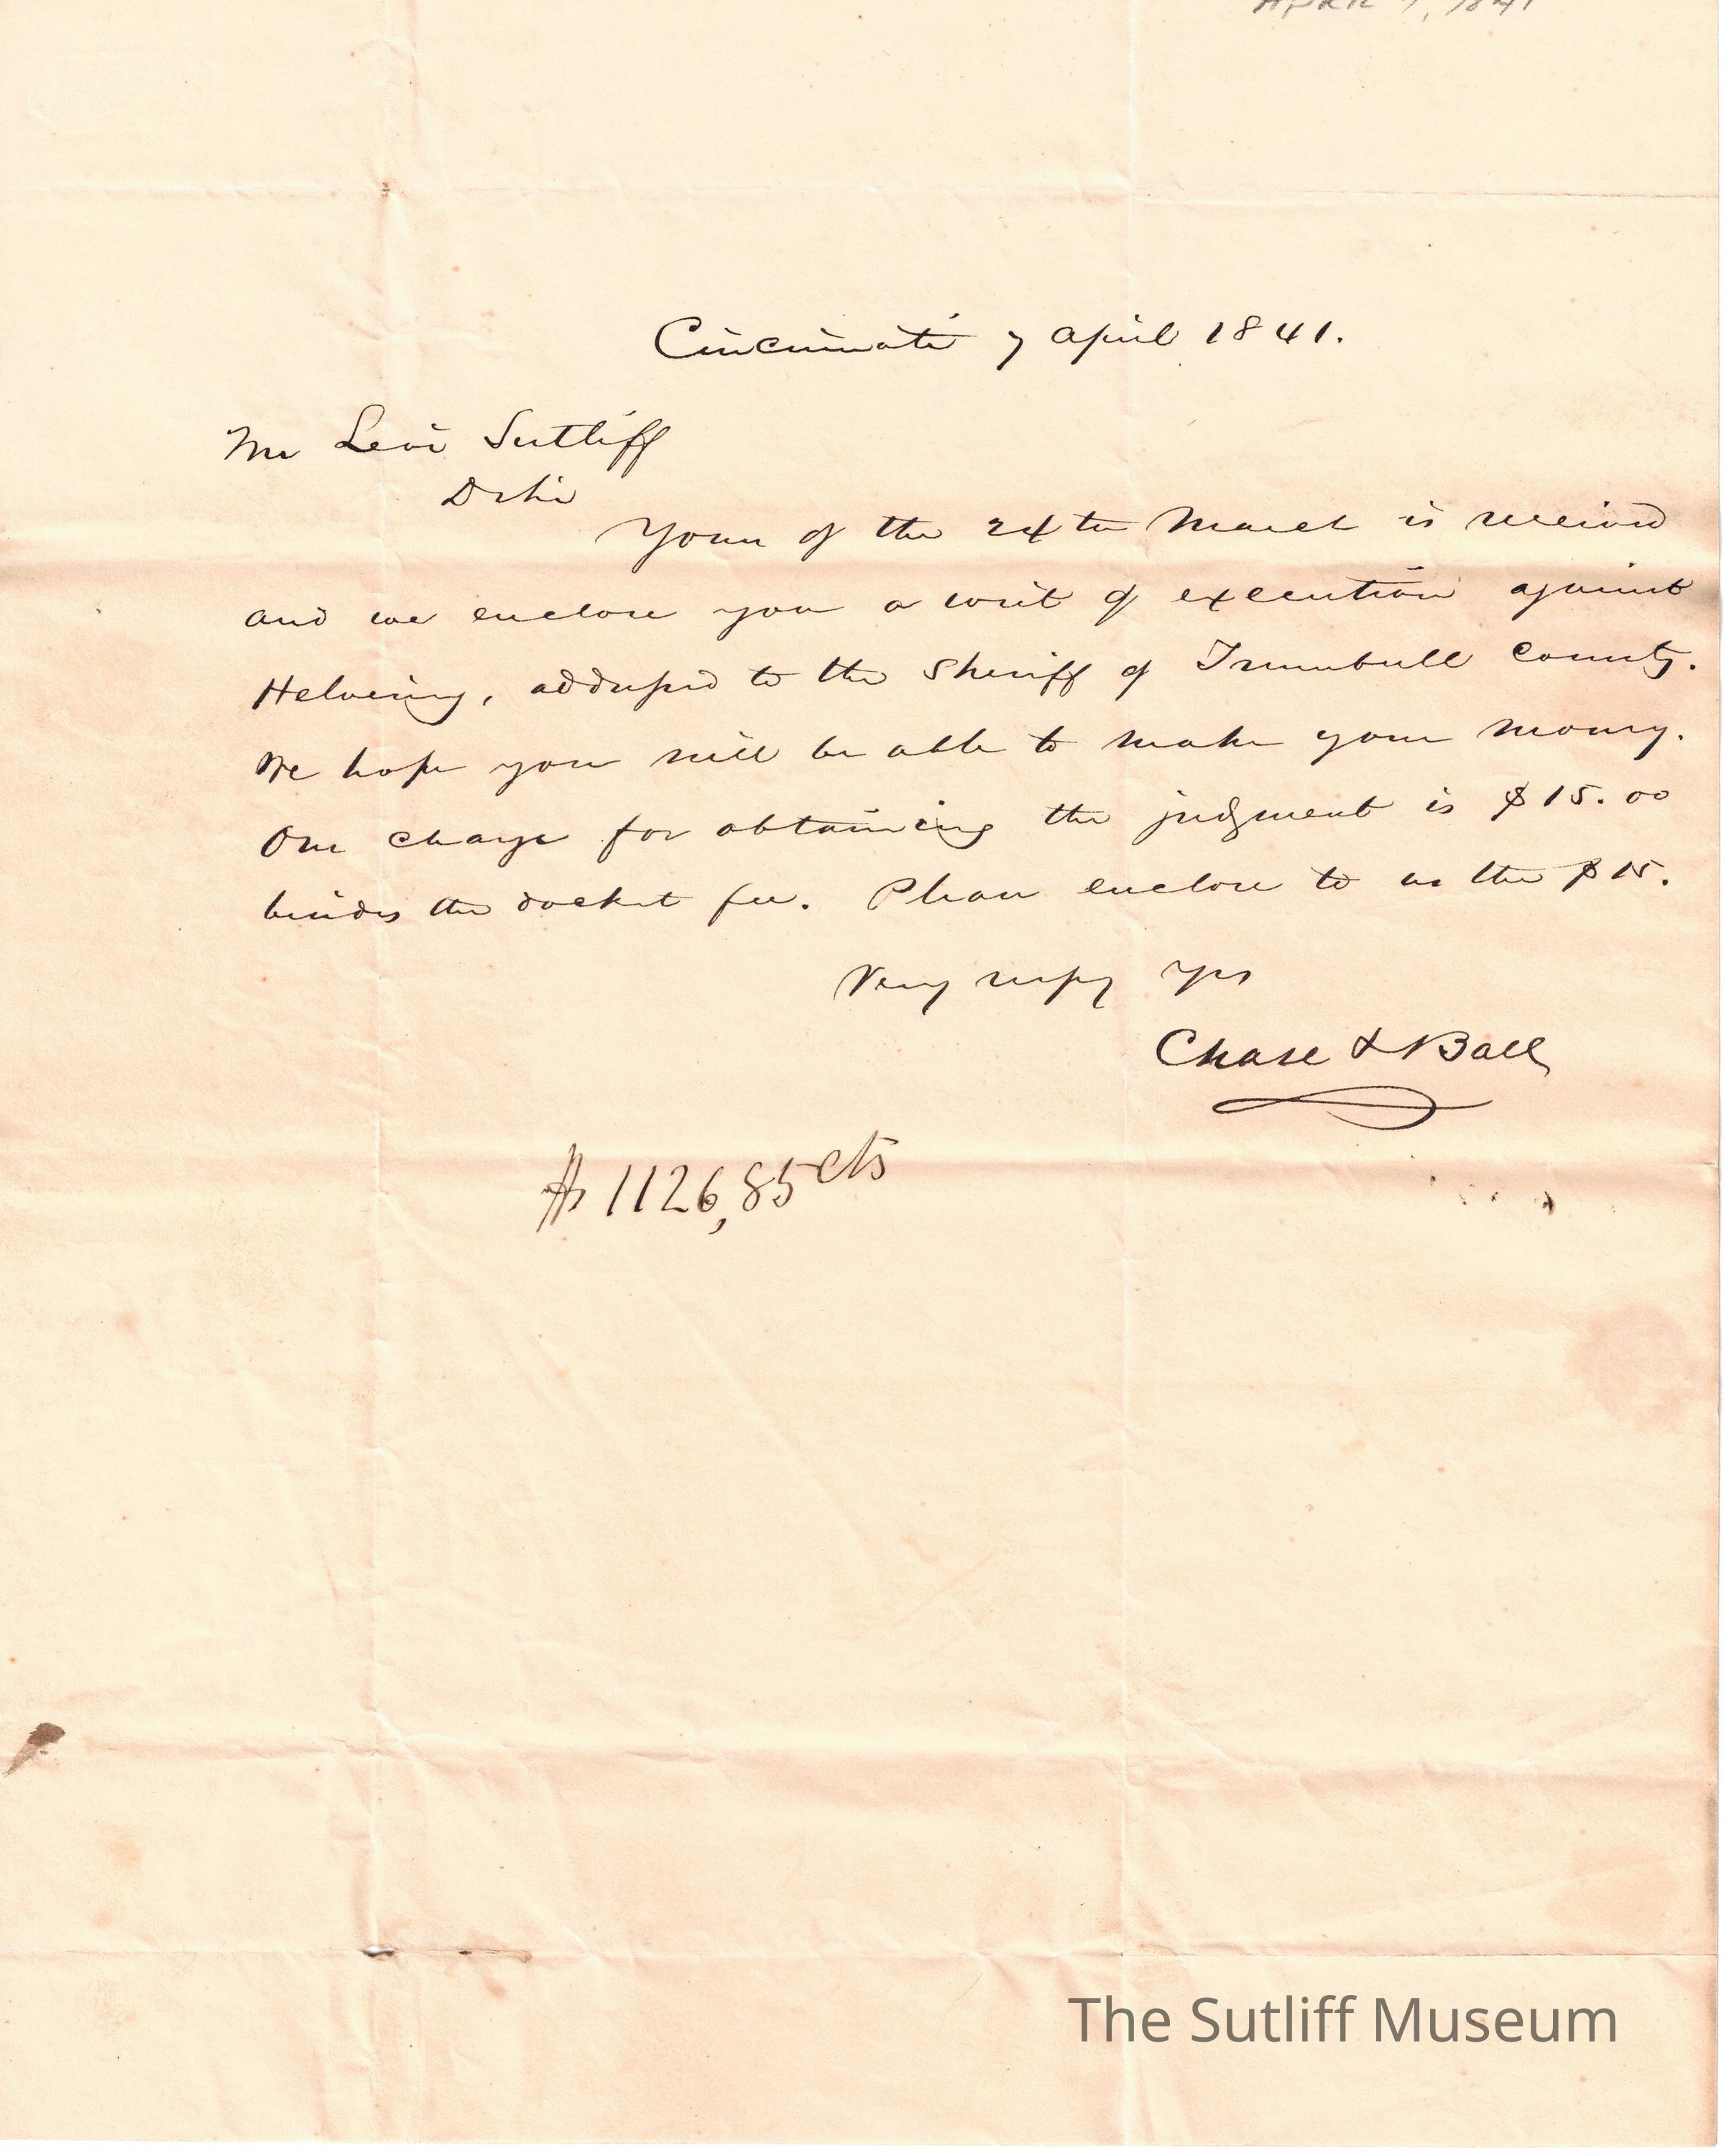 APRIL 7, 1841
Cincinnati 7 April 1841.
Mr Levi Sutliff
Dr Sir
Yours of the 24th March is received
and we enclose you a writ of execution against
Helvering, addressed to the Sheriff of Trumbull County.
We hope you will be able to make your money.
Our charge for obtaining the judgment is $15.00
besides the docket fee. Please enclose to us the $15.
Very respy yrs
Chase & Ball
$ 1126,85 cts
The Sutliff Museum